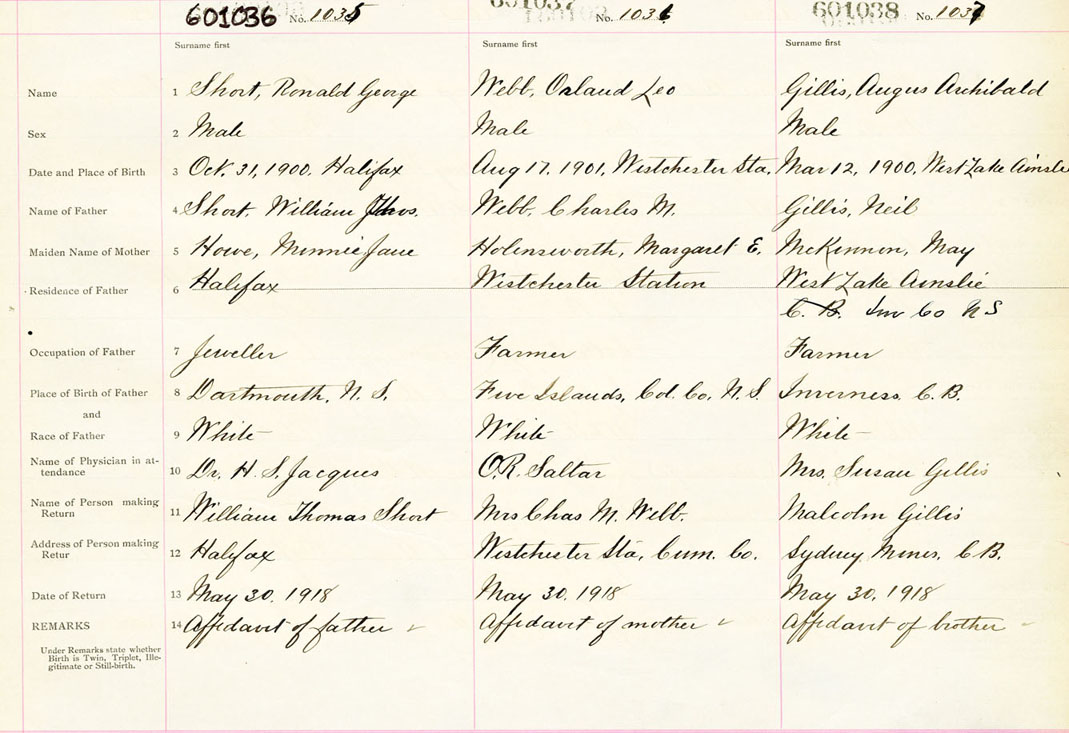 601036 No. 1035 601037 No. 1036 601038 No. 1037
Surname first Surname first Surname first
Name 1 Short, Ronald George Webb, Orland Leo Gillis, Angus Archibald
Sex 2 Male Male Male
Date and Place of Birth 3 Oct. 31, 1900. Halifax Aug 17. 1901, Westchester Sta. Mar 12, 1900, West Lake Ainslie
Name of Father 4 Short, William Thos. Webb, Charles M. Gillis, Neil
Maiden Name of Mother 5 Howe, Minnie Jane Holensworth, Margaret E. McKinnon, May
Residence of Father 6 Halifax Westchester Station West Lake Ainslie
C. B. Inv Co N S
Occupation of Father 7 Jeweller Farmer Farmer
Place of Birth of Father 8 Dartmouth, N. S. Five Islands, Col. Co. N. S. Inverness C. B.
and
Race of Father 9 White White White
Name of Physician in at-
tendance 10 Dr. H. S. Jacques O. R. Saltar Mrs. Susan Gillis
Name of Person making
Return 11 William Thomas Short Mrs Chas M. Webb. Malcolm Gillis
Address of Person making
Retur 12 Halifax Westchester Sta, Cum. Co. Sydney Mines, C B.
Date of Return 13 May 30. 1918 May 30. 1918 May 30, 1918
REMARKS 14 Affidavit of father Affidavit of mother Affidavit of brother
Under Remarks state whether
Birth is Twin, Triplet, Ille-
gitimate or Still-birth.